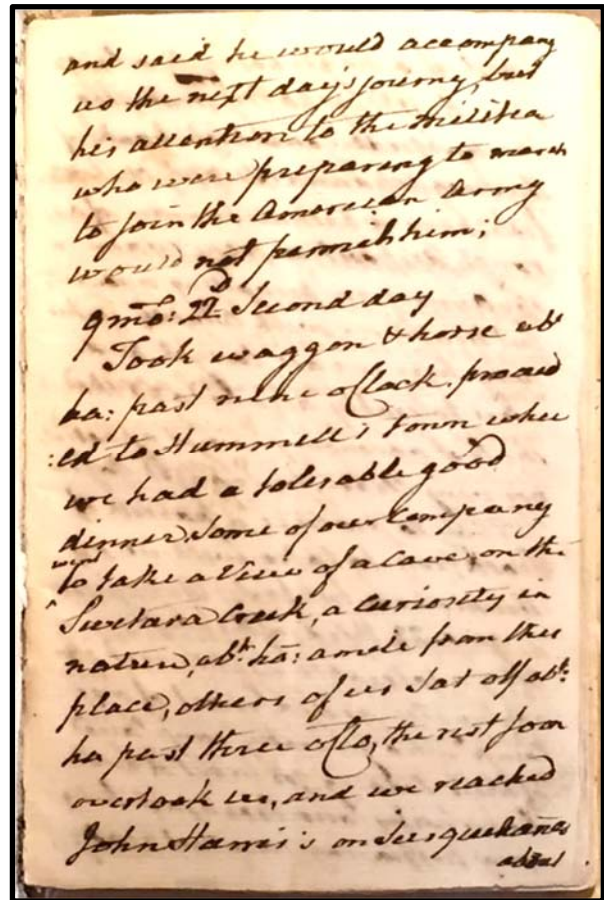 and said he would accompany
us the next day's journey, but
his attention to the militia
who were preparing to march
to join the American Army
would not permit him;
9mo: 22d Second day
Took waggon & horse abt
ha: past nine o Clock, proceed
:ed to Hummell's town where
we had a tolerable good
dinner, some of our Company
went
^ to take a View of a Cave, on the
Swetara Creek, a Curiosity in
nature, abt. ha: a mile from this
place, others of us Sat off abt:
ha past three oClo, the rest soon
overtook us, and we reached
John Harris's on Susquehanes
about